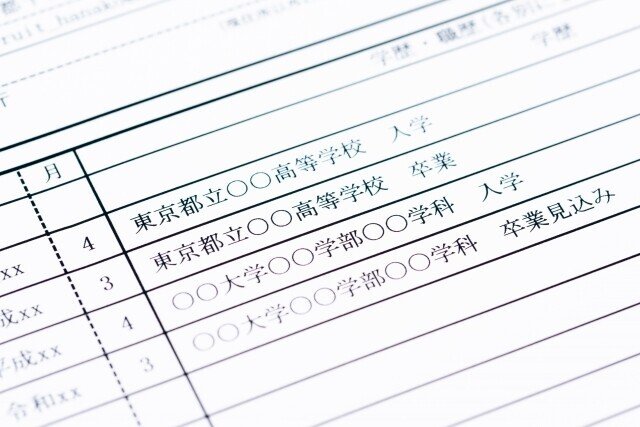 学歴・職歴(各別に
月 学歴
xx 4 東京都立○○高等学校 入学
成xx 3 東京都立○○高等学校 卒業
平成xx 4 ○○大学○○学部○○学科 入学
令和xx 3 ○○大学○○学部○○学科 卒業見込み